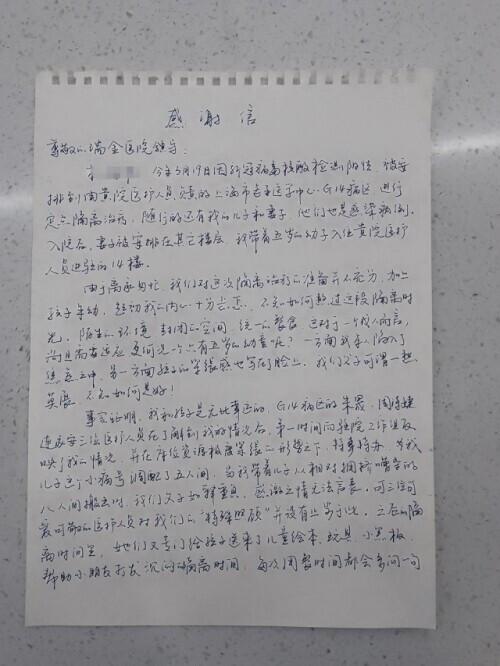 感谢信
尊敬的瑞金医院领导:
今年5月19日因新冠病毒核酸检测阳性,被安
排到由黄院医护人员负责的上海市老年医学中心G14病区进行
定点隔离治疗,随行的还有我的儿子和妻子,他们也是感染病例。
入院后,妻子被安排在其它楼层,我带着五岁的幼子入住黄院医护
人员进驻的14楼。
由于离家匆忙,我们对这次隔离治疗的准备并不充分,加上
孩子年幼,起初我的内心十分忐忑,不知如何熬过这段隔离时
光。陌生的环境,封闭的空间,统一的餐食,这对于一个成人而言,
尚且需要适应,更何况一个只有五岁的幼童呢?一方面我本人陷入了
焦虑之中,另一方面孩子的紧张感也写在脸上。我们父子可谓一愁
莫展,不知如何是好!
事实证明,我和孩子是无比幸运的,G14病区的朱霞、周
三位医护人员在了解到我的情况后,第一时间向驻院工作组反
映了我的情况,并在床位资源极度紧张的形势之下,特事特办,为我
儿子这个小病号调配了五人间,当我带着儿子从相对拥挤嘈杂的
八人间搬出时,我们父子如释重负,感激之情无法言表,可三位可
爱可敬的医护人员对我们的“特殊照顾”并没有止步于此。之后的隔
离时间里,她们又专门给孩子送来了儿童绘本、玩具、小黑板,
帮助小朋友打发沉闷的隔离时间,每次用餐时间都会多问一句